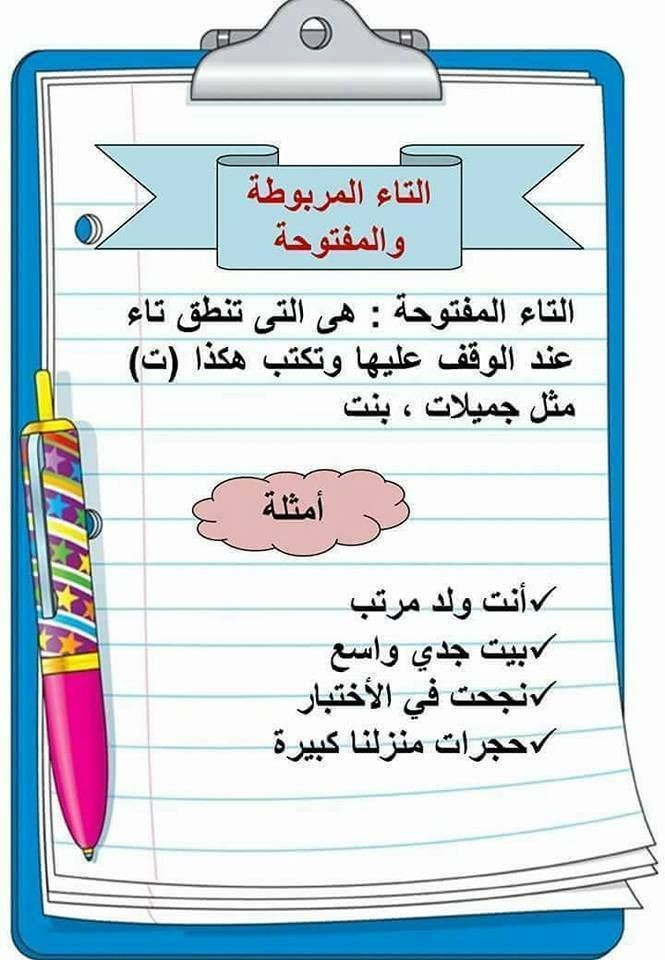 التاء المربوطة
والمفتوحة
التاء المفتوحة : هى التى تنطق تاء
عند الوقف عليها وتكتب هكذا (ت)
مثل جميلات ، بنت
أمثلة
✓أنت ولد مرتب
✓بيت جدي واسع
✓نجحت في الأختبار
✓حجرات منزلنا كبيرة